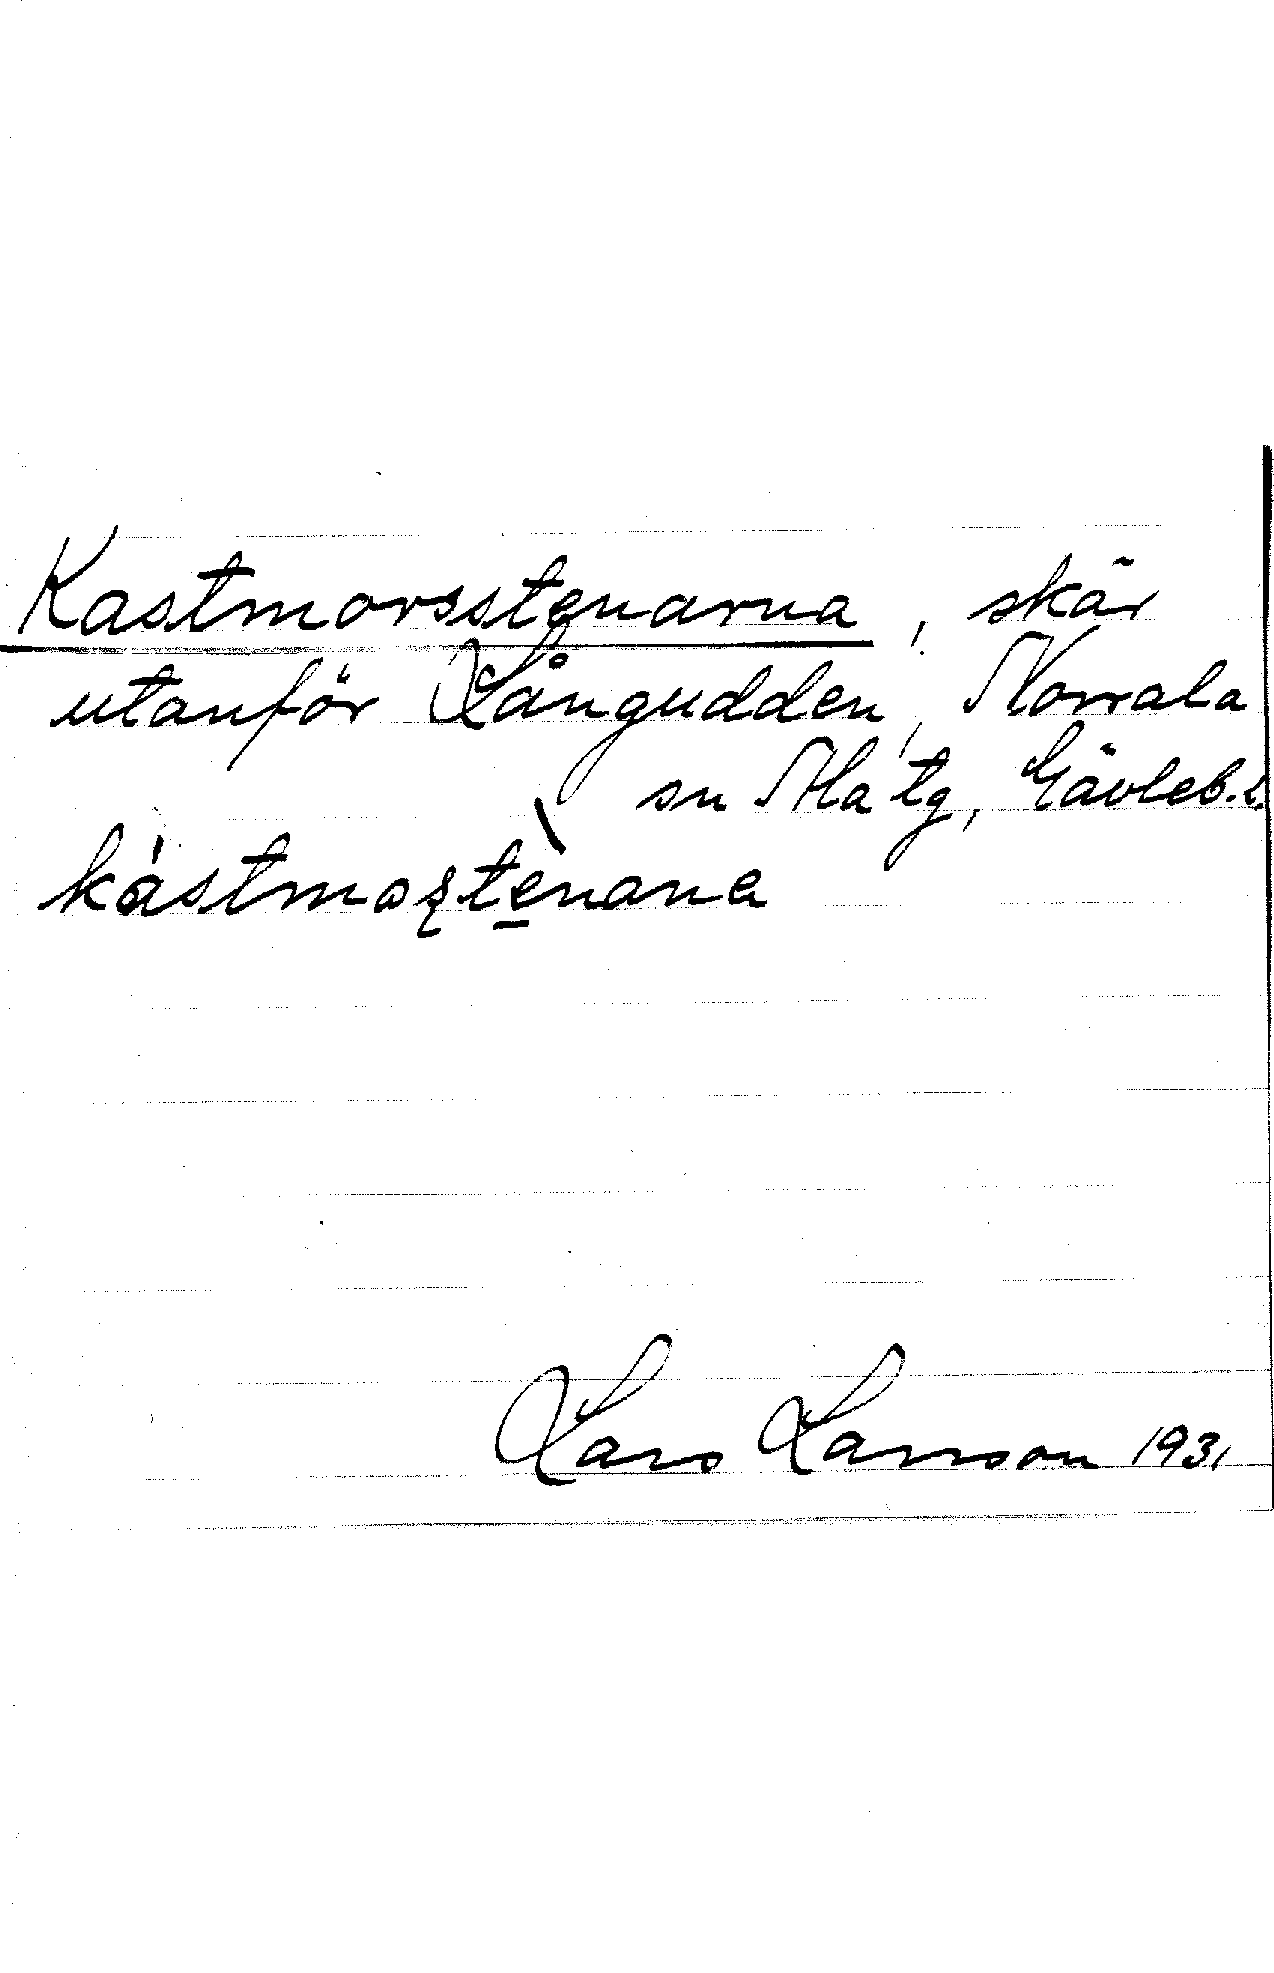 Kastmorsstenarna, skär
utanför Långudden, Norrala
sn Ala tg, Gävleb. l.
kástmoștènana
Lars Larsson 1931